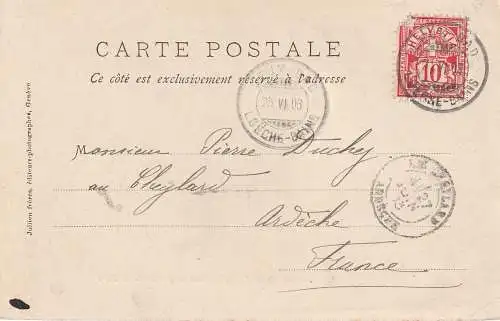 CARTE POSTALE
Ce côté est exclusivement réservé à l'adresse
HELVETIA
10
LOUÈCHE-BAINS
26 VI 06
LOUÈCHE-BAINS
Monsieur Pierre Duchy
au Cheylard
Ardèche
France
ARDÈCHE
Jullien frères, Éditeurs-photographes, Genève